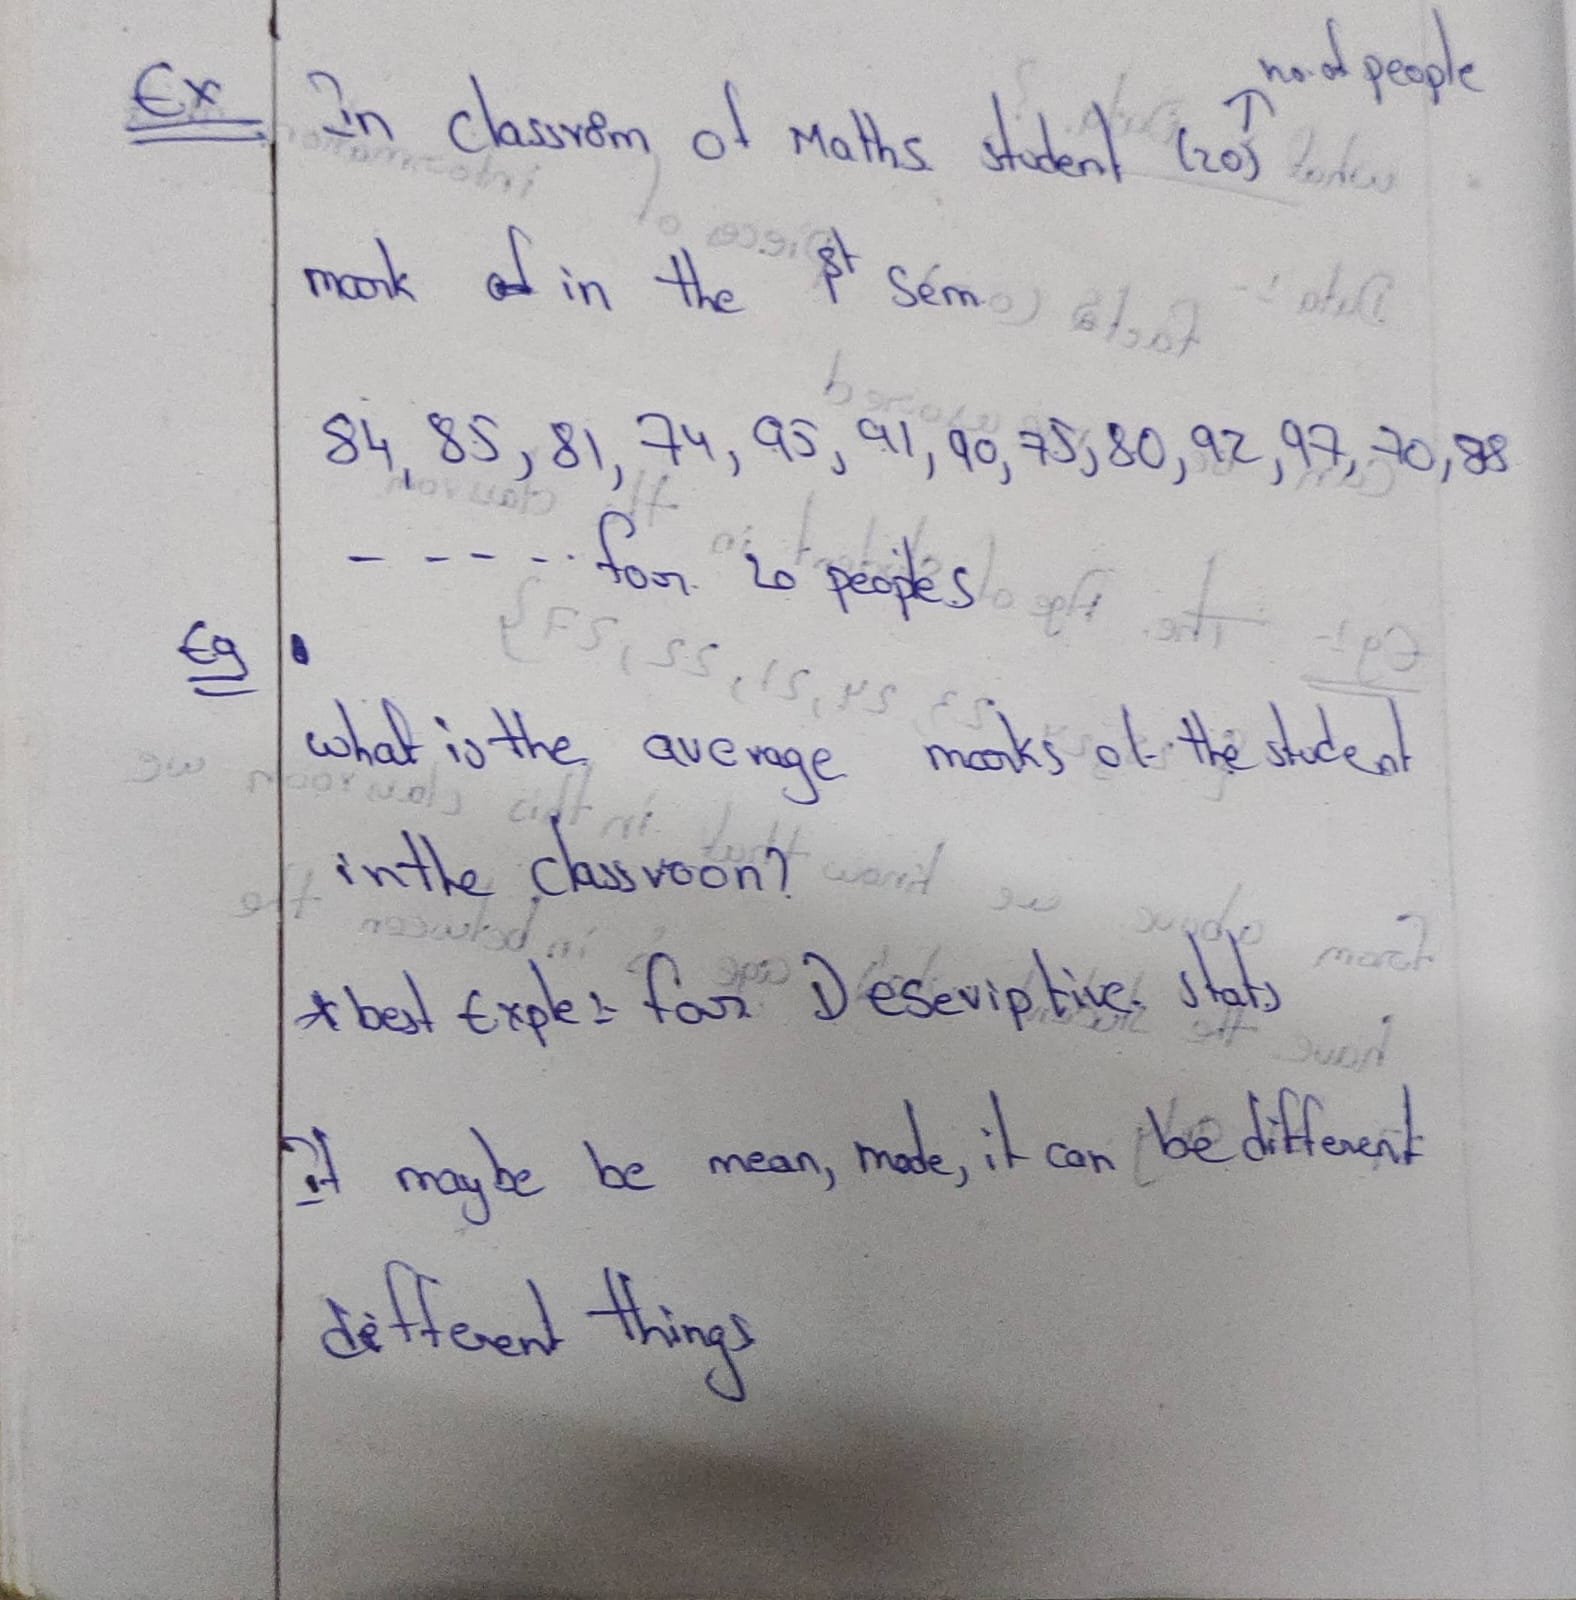 no. of people
Ex In classroom of Maths student (20)
mark of in the 1st sem
84, 85, 81, 74, 95, 91, 90, 75, 80, 92, 97, 70, 88
- - - - - . for 20 peoples
Eg
what is the average marks of the student
in the classroon?
* best Exple:- for Descriptive stats
It maybe be mean, mode, it can be different
different things